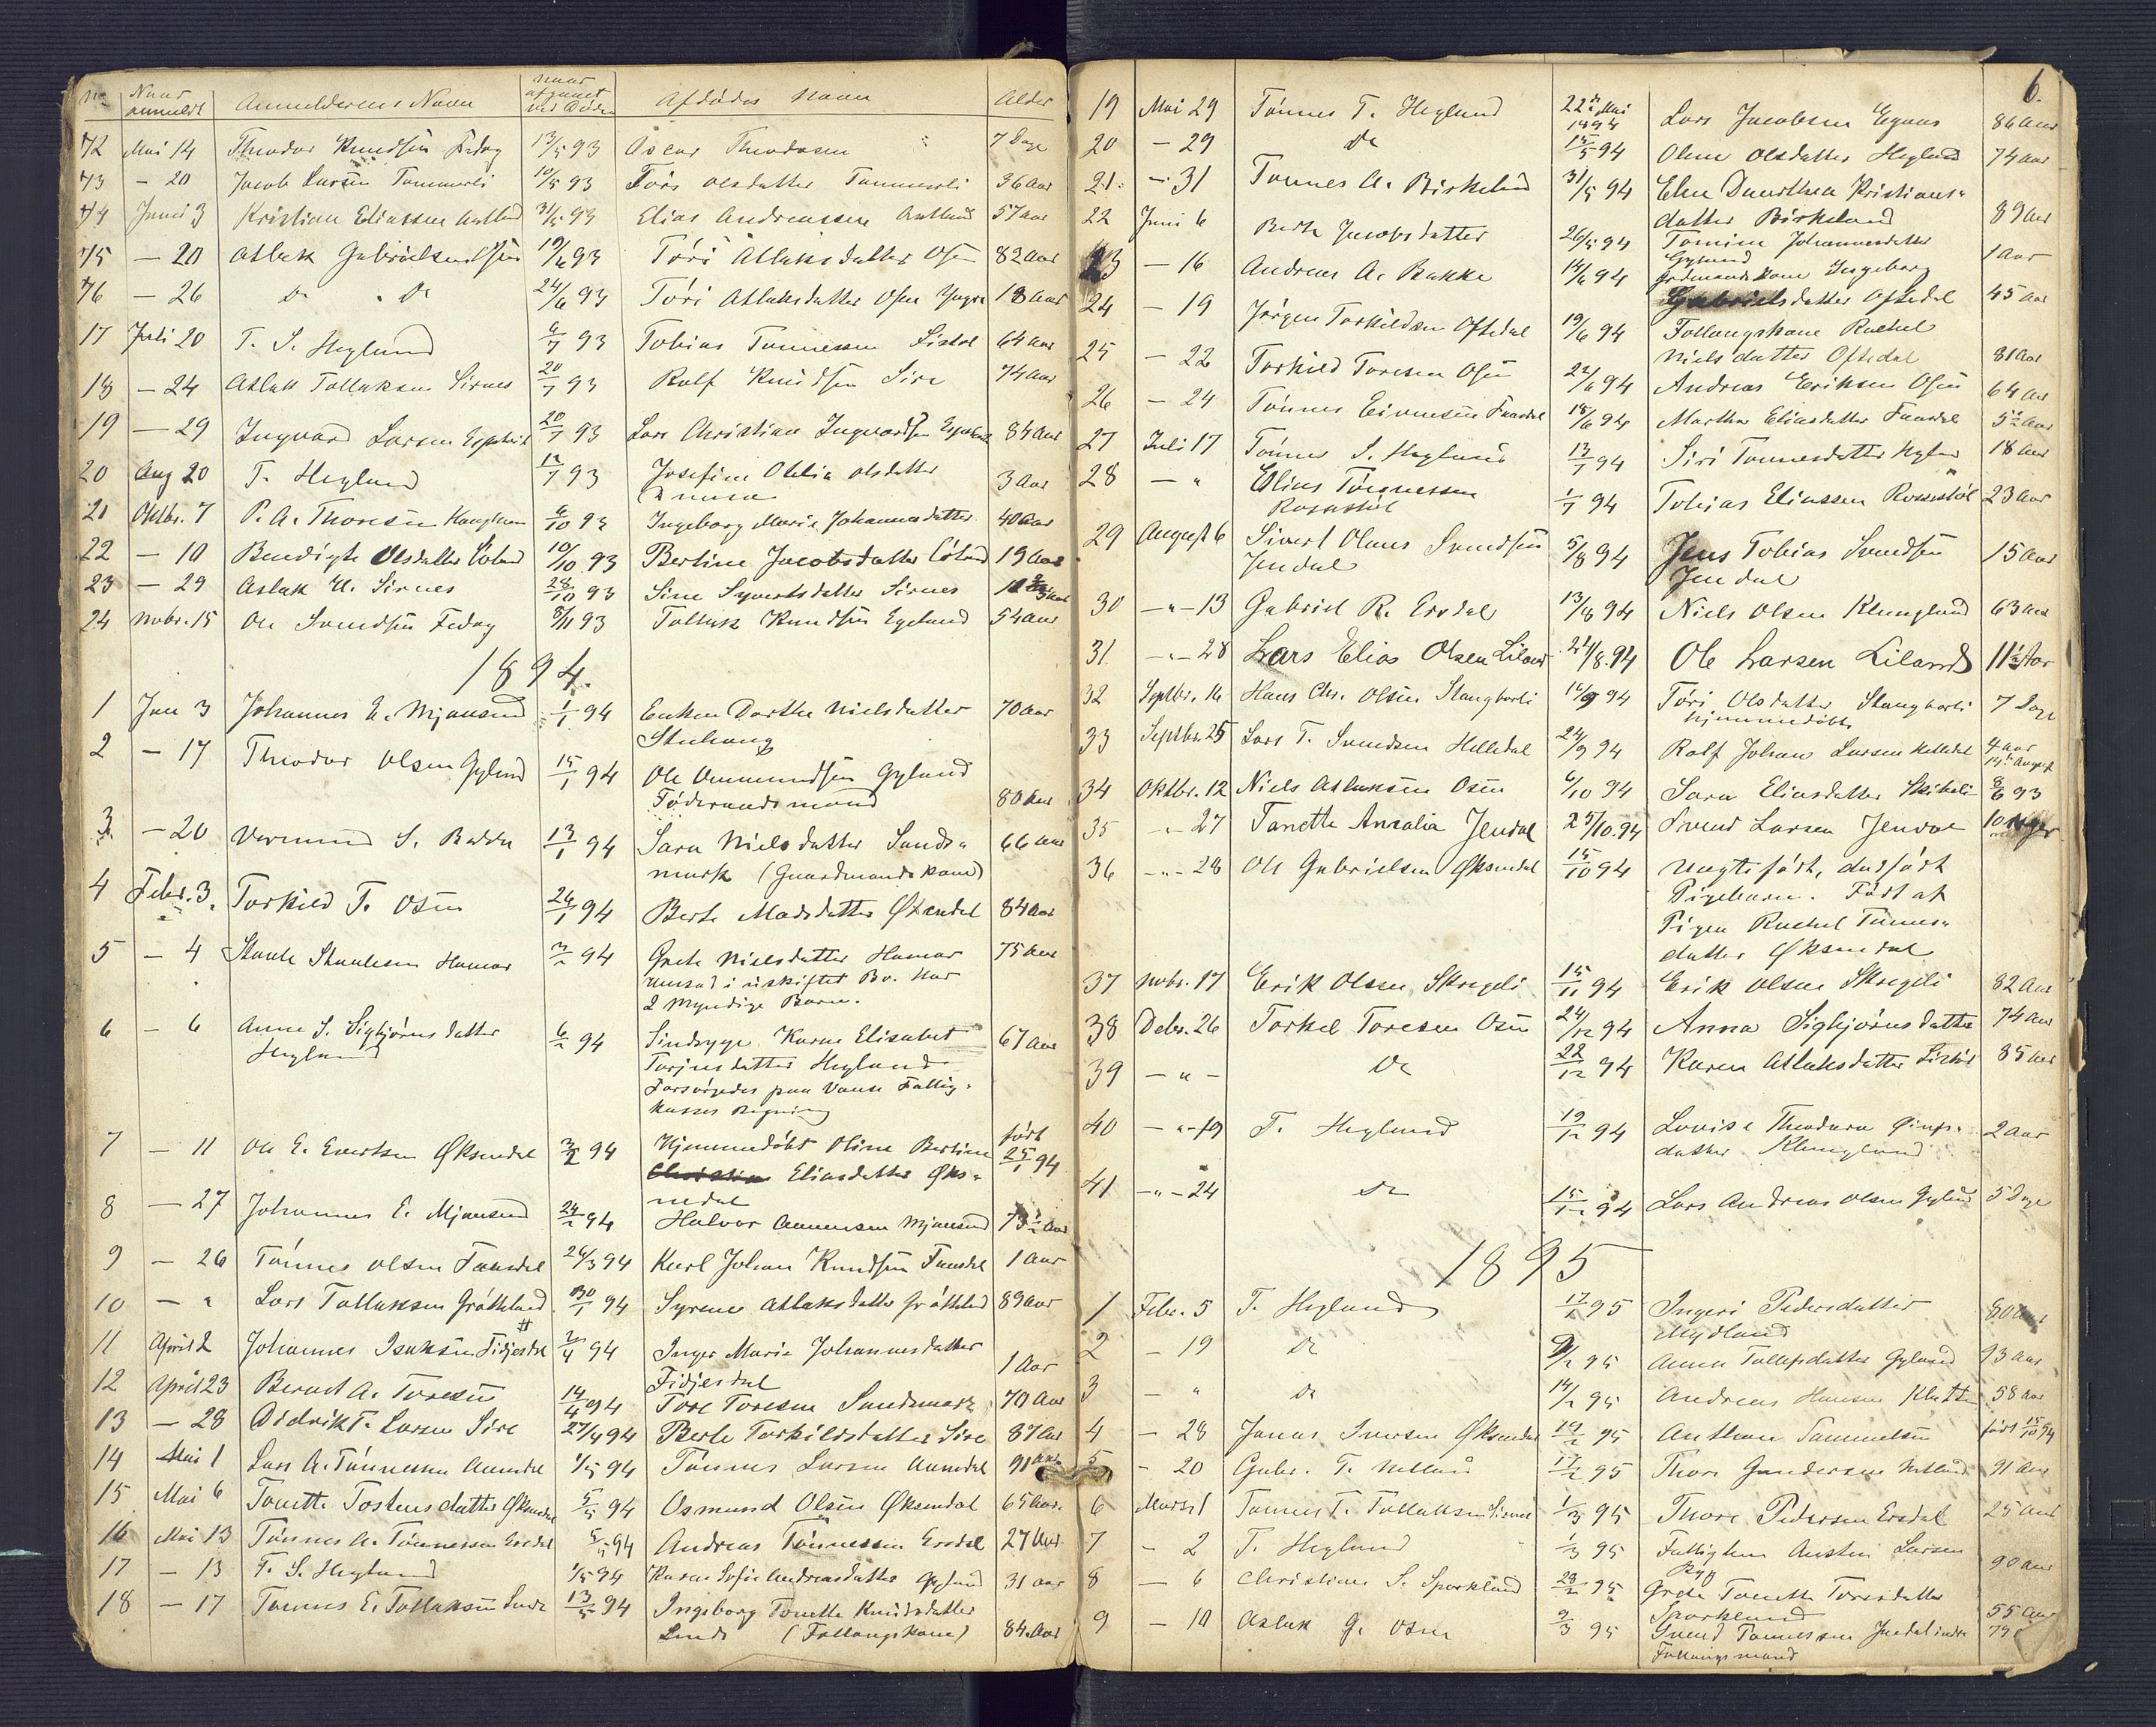 No Naar anmeldt Anmelderens Navn naar afgaaet ved Døden Afdødes Navn Alder
12 Mai 14 Theodor Knudsen Fedog 13/5 93 Oscar Theodorsen 7 Dage
13 - 20 Jacob Larsen Tommerli 10/5 93 Tøri Olsdatter Tommerli 36 Aar
14 Juni 3 Kristian Eliassen 31/5 93 Elias Andreassen 57 aar
15 - 20 Aslak Gabrielsen Osen 19/6 93 Tøri Atlaksdatter Osen 82 Aar
16 - 26 Do Do 24/6 93 Tøri Atlaksdatter Osen Yngre 18 Aar
17 Juli 20 T. S. Heglund 6/7 93 Tobias Tønnesen Listøl 64 Aar
18 - 24 Aslak Tollaksen Sirnes 20/7 93 Rolf Knudsen Sire 74 Aar
19 - 29 Ingvard Larsen 20/7 93 Lars Christian Ingvardsen 84 Aar
20 Aug 20 T. Heglund 12/7 93 Josefine Otilia Olsdatter
3 Aar
21 Oktbr. 7 P. A. Thoresen 6/10 93 Ingeborg Marie Johannesdatter 40 Aar
22 - 10 Bendigte Olsdatter 10/10 93 Bertine Jacobsdatter 19 Aar
23 - 29 Aslak A. Sirnes 28/10 93 Sine Syvertsdatter Sirnes
24 Novbr. 15 Ole Svendsen Fedog 8/11 93 Tollak Knudsen Egelund 54 aar
1894.
1 Jan 3 Johannes E. Mjaasund 1/1 94 Enken Dorthe Nielsdatter 70 Aar
2 - 17 Theodor Olsen Gylund 15/1 94 Ole Ommundsen Gylund
Føderaadsmand 80 Aar
3. - 20 Vermund S. 13/1 94 Sara Nielsdatter Sands- 66 Aar
mark (Gaardmandskone)
4 Febr. 3. Torkild T. Osen 26/1 94 Berte Madsdatter Øxendal 84 Aar
5 - 4 Staale Staalesen Hamar 3/2 94 Grete Nielsdatter Hamar 75 Aar
umsad i uskiftet Bo. Har
2 Myndige Børn.
6 - 6 Anne S. Sigbjørnsdatter 6/2 94 Sindsyge Karen Elisabet 67 Aar
Heglund Torjusdatter Heglund
Forsørgedes paa Vanse Fattig-
kasses Regning
7 - 11 Ole E. Evertsen Øksendal 3/2 94 Hjemmedøbt Oline Bertine født 25/1 94
Christine Eliasdatter Øks-
nedal
8 - 27 Johannes E. Mjaasund 24/2 94 Halvor Aanensen Mjaasund 73½ Aar
9 - 26 Tønnes Olsen Faasdal 26/3 94 Karl Johan Knudsen Faasdal 1 Aar
10 - " Lars Tollaksen Grøtteland 30/1 94 Syrene Atlaksdatter Grøtteland 89 Aar
11 April 2 Johannes Isaksen Fidjesdal 2/4 94 Inger Marie Johannesdatter
Fidjesdal 1 Aar
12 April 23 Berent A. Toresen 14/4 94 Tore Toresen Sandsmark 70 Aar
13 - 28 Didrik T. Larsen Sire 27/4 94 Berte Torkildsdatter Sire 87 Aar
14 Mai 1 Lars A. Tønnesen Aamdal 1/5 94 Tønnes Larsen Aamdal 91 Aar
15 Mai 6 Tonette Tostensdatter Øksendal 5/5 94 Osmund Olsen Øksendal 65 Aar.
16 Mai 13 Tønnes A. Tønnessen Ersdal 5/5 94 Andreas Tønnessen Ersdal 27 Aar
17 - 13 T. S. Heglund 1/5 94 Karen Sofie Andreasdatter Gylund 31 aar
18 - 17 Tønnes E. Tollaksen Lunde 13/5 94 Ingeborg Tonette Knudsdatter
Lunde (Fattigskone) 84 Aar
6.
19 Mai 29 Tønnes T. Heglund 22de Mai 1894 Lars Jacobsen Egaas 86 Aar
20 - 29 Do 15/5 94 Oline Olsdatter Heglund 74 Aar
21. - 31 Tønnes A. Birkeland 31/5 94 Elen Dorthea Kristians-
datter Birkeland 89 Aar
22 Juni 6 Berte Jacobsdatter 26/5 94 Tomine Johannesdatter
Gylund 1 Aar
23 - 16 Andreas A. Bakke 14/6 94 Grdmandskone Ingeborg
Gabrielsdatter Oftedal 45 Aar
24 - 19 Jørgen Torkildsen Oftedal 19/6 94 Fattigskone Rachel
Nielsdatter Oftedal 81 Aar
25 - 22 Torkild Toresen Osen 22/6 94 Andreas Eriksen Osen 64 Aar
26 - 24 Tønnes Faasdal 18/6 94 Martha Eliasdatter Faasdal 5½ Aar
27 Juli 17 Tønnes S. Heglund 13/7 94 Siri Tønnesdatter 18 Aar
28 - " Elias Tønnessen 1/7 94 Tobias Eliassen 23 Aar
29 August 6 Sivert Olaus Svendsen 5/8 94 Jens Tobias Svendsen 15 Aar
Jendal Jendal
30 -"- 13 Gabriel R. Ersdal 13/8 94 Niels Olsen Klunglund 63 Aar
31. -"- 28 Lars Elias Olsen Liland 24/8. 94 Ole Larsen Liland 11½ Aar
32 Septbr. 16 Hans Chr. Olsen Stangborli 16/9 94 Tøri Olsdatter Stangborli 7 Dage
hjemmedøbt
33 Septbr. 25 Lars T. Svendsen Helledal 24/9 94 Rolf Johan Larsen Helledal 4 aar 14de August
34 Oktbr. 12 Niels Aslaksen Osen 6/10 94 Sara Eliasdatter 93
35 -"- 27 Tanette Amalia Jendal 25/10. 94 Svend Larsen Jendal
36 -"- 28 Ole Gabrielsen Øksendal 15/10 94 Uægte født, dødfødt
Pigebarn. Født af
Pigen Rachel Tønnes-
datter Øksendal
37 Novbr. 17 Erik Olsen Skregeli 15/11 94 Erik Olsen Skregeli 82 Aar
38 Debr. 26 Torkel Toresen Osen 24/12 94 Anna Sigbjørnsdatter 74 Aar
39 - " - Do 22/12 94 Karen Atlaksdatter Listøl 85 Aar
40 -"- 19 T. Heglund 19/12 94 Lovise Theodora
datter Klunglund 2 Aar
41 -"- 24 Do 15/12 94 Lars Andreas Olsen Gylund 5 Dage
1895
1 Febr. 5 T. Heglund 17/1 95 Ingeri Pedersdatter 80
Mydland
2 - 19 Do 9/2 95 Anne Tollefsdatter Gylund 93 Aar
3 - " Do 14/2 95 Andreas Hansen 58 Aar
4 - 28 Jonas Iversen Øksendal 19/2 95 Anthon Samuelsen født 15/10 94
5 - 20 Gabr. T. Netland 17/2 95 Thore Gundersen Netland 91 Aar
6 Marts 1 Tønnes T. Tollaksen Sirnes 1/3 95 Thore Pedersen Ersdal 25 Aar
7 - 2 T. Heglund 1/3 95 Fattiglem Austen Larsen
90 Aar
8 - 6 Christian S. Sporkland 28/2 95 Grete Tonette Toresdatter
Sporkland 55 Aar
9 - 10 Aslak G. Osen 9/3 95 Svend Tønnessen Jendal indre
Fattigsmand